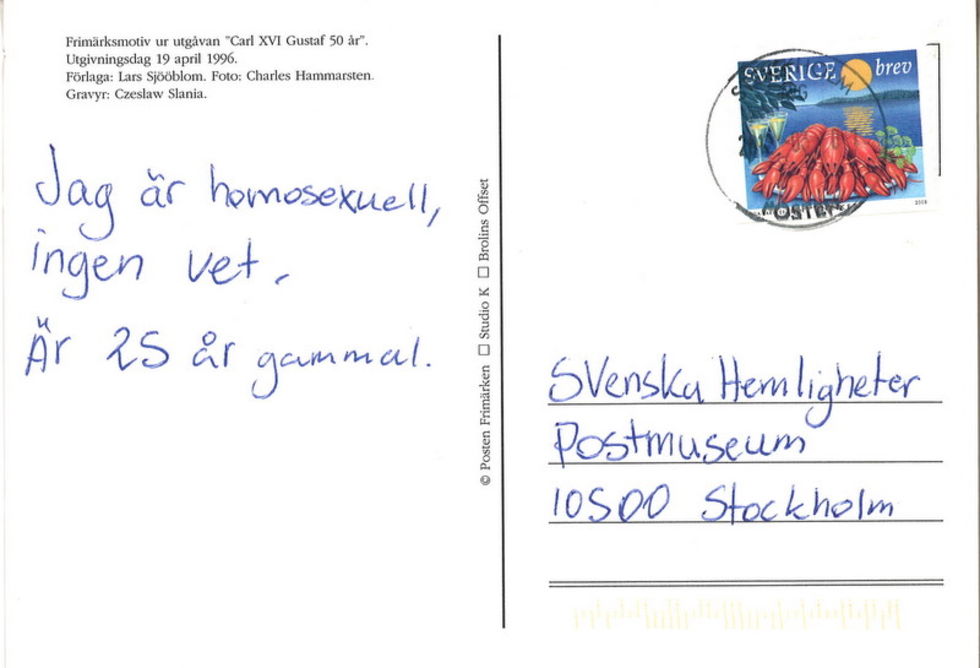 Frimärksmotiv ur utgåvan "Carl XVI Gustaf 50 år".
Utgivningsdag 19 april 1996.
Förlaga: Lars Sjööblom. Foto: Charles Hammarsten.
Gravyr: Czeslaw Slania.
Jag är homosexuell,
ingen vet.
Är 25 år gammal.
© Posten Frimärken □ Studio K □ Brolins Offset
SVERIGE brev
POSTEN
Svenska Hemligheter
Postmuseum
10500 Stockholm